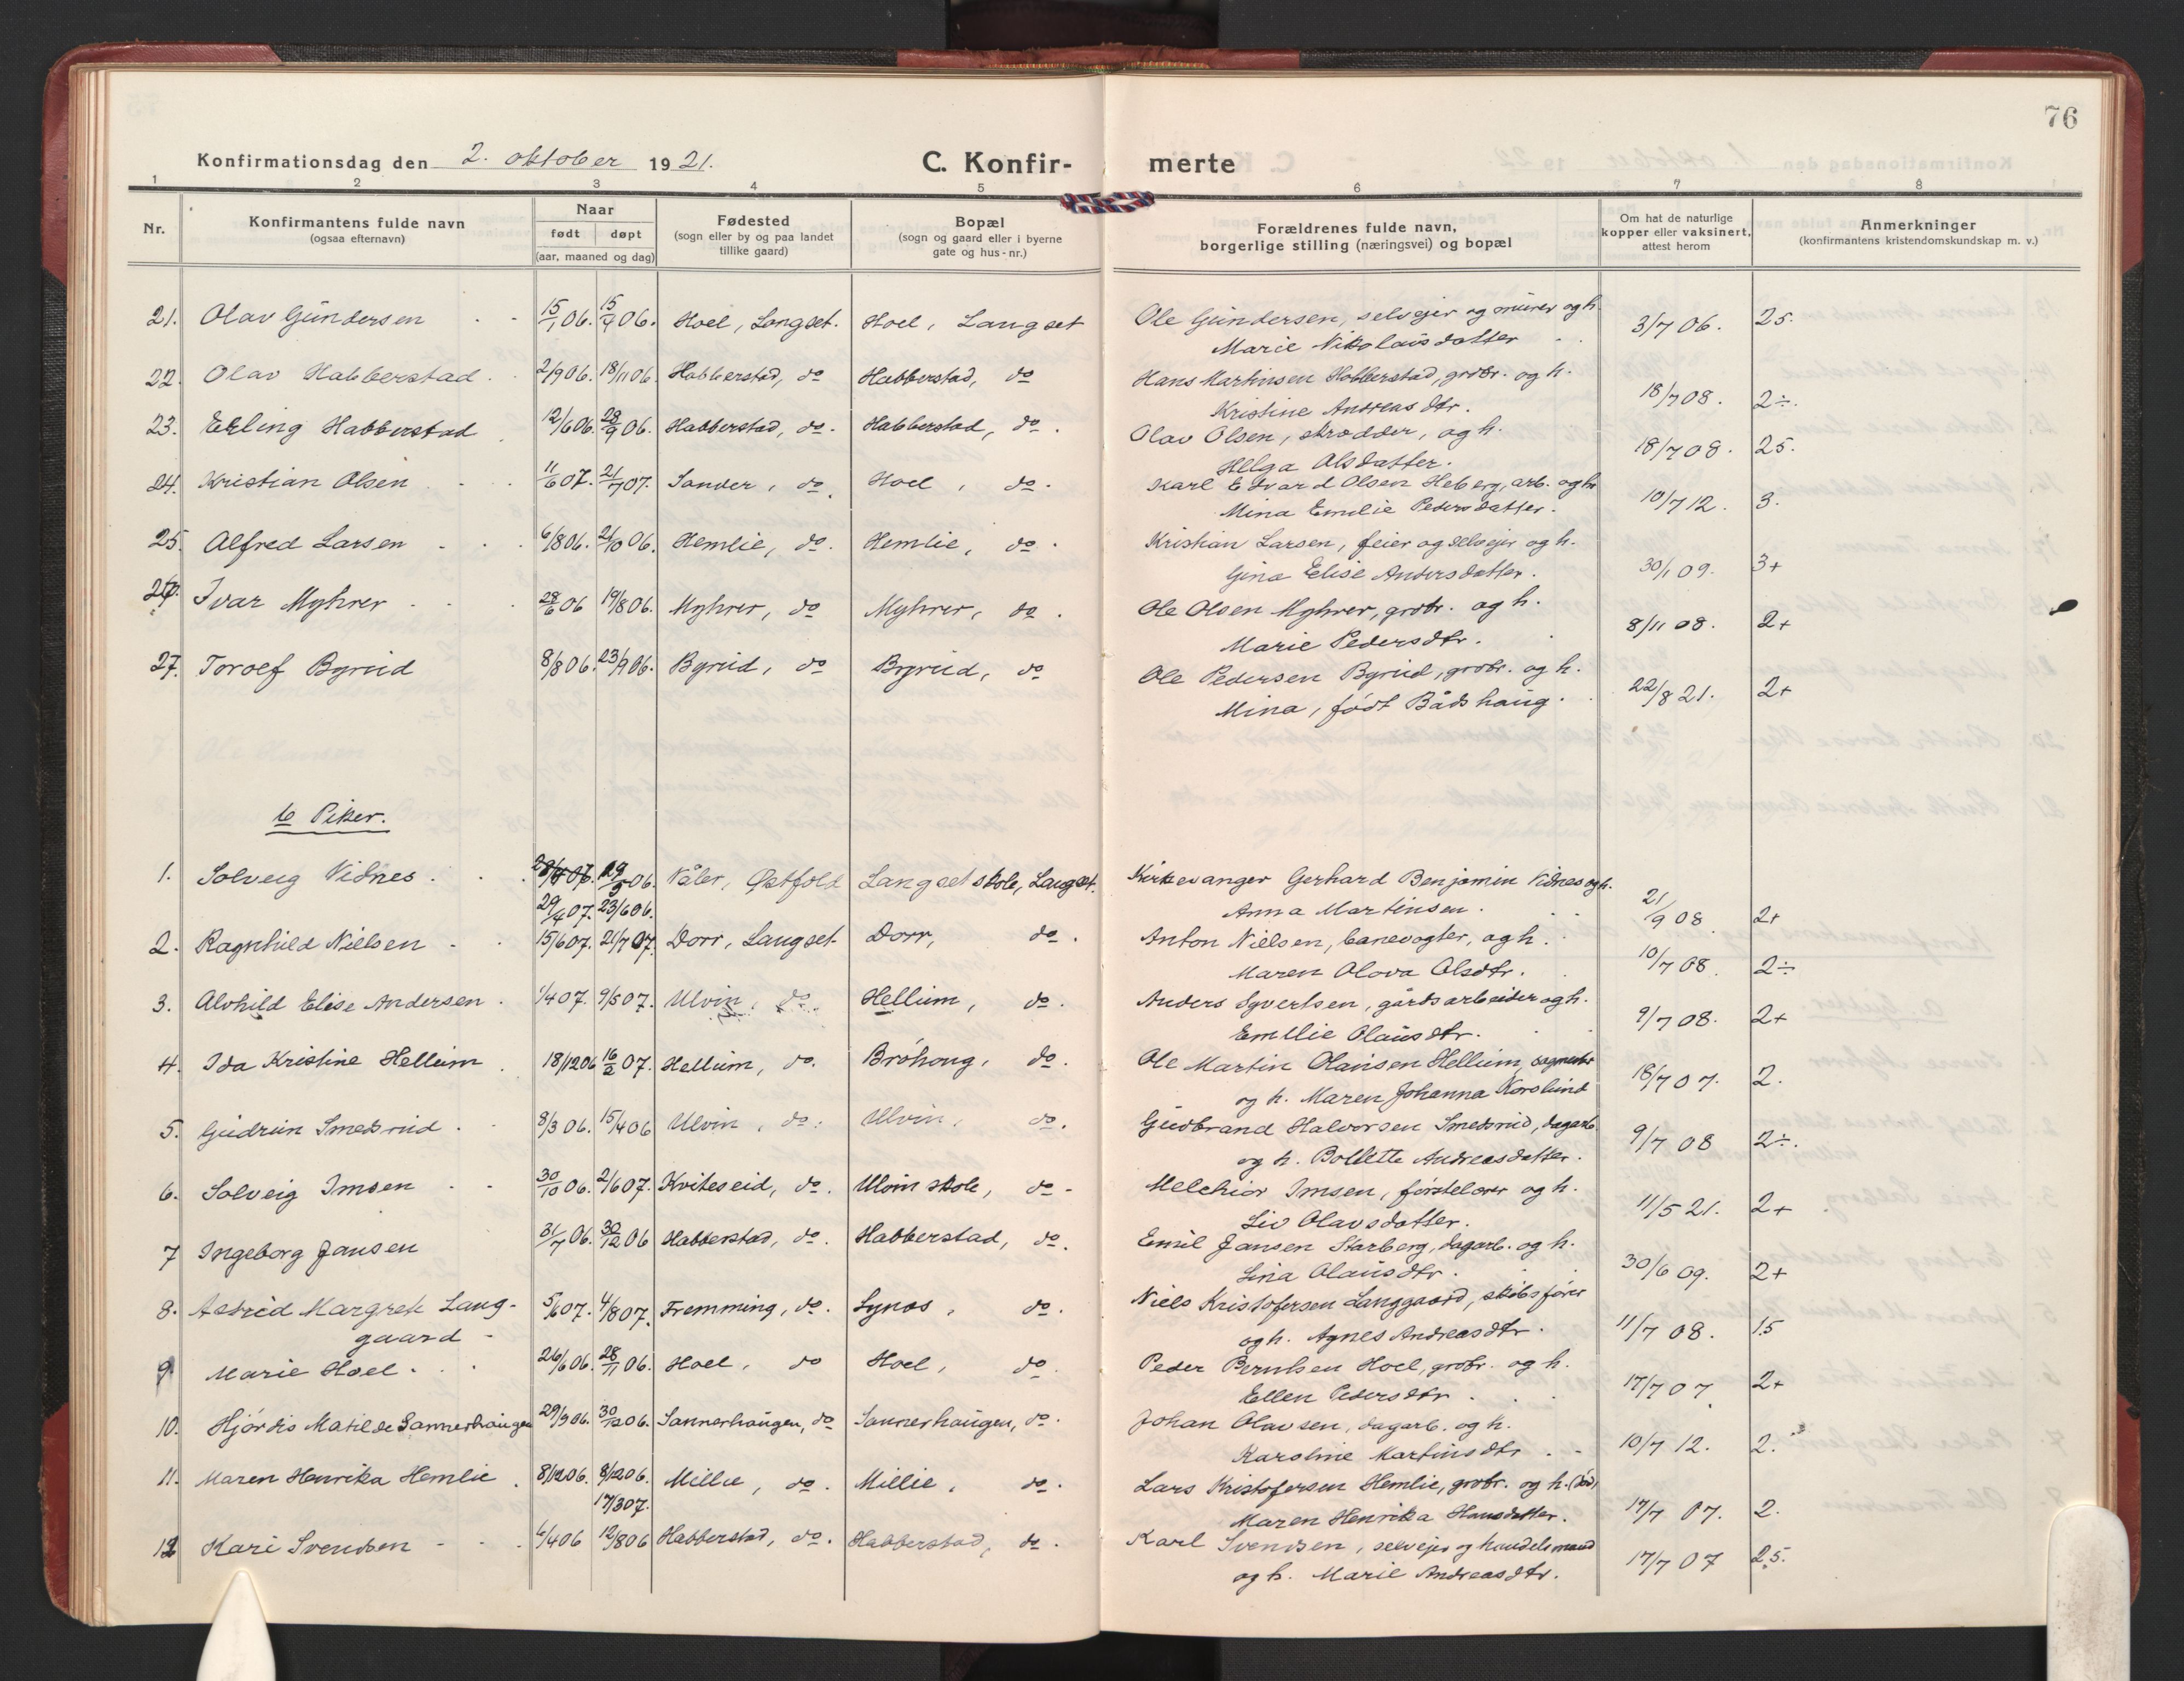 76
Konfirmationsdag den 2. oktober 1921.
C. Konfir-
merte
1 2 3 4 5 6 7 8
Nr.
Konfirmantens fulde navn
(ogsaa efternavn)
Naar
født døpt
(aar, maaned og dag)
Fødested
(sogn eller by og paa landet
tillike gaard)
Bopæl
(sogn og gaard eller i byerne
gate og hus-nr.)
Forældrenes fulde navn,
borgerlige stilling (næringsvei) og bopæl
Om hat de naturlige
kopper eller vaksinert,
attest herom
Anmerkninger
(konfirmantens kristendomskundskap m. v.)
21. Olav Gundersen 15/1 06. 15/4 06. Hoel, Langset. Hoel, Langset Ole Gundersen, selvejer og murer og h.
Marie Nikolausdatter 3/7 06. 25.
22. Olav Habberstad. 2/9 06. 18/11 06. Habberstad, do Habberstad, do Hans Martinsen Habberstad, grbr. og h.
Kristine Andreasdtr. 18/7 08. 2÷.
23. Erling Habberstad 12/6 06. 23/9 06. Habberstad, do. Habberstad, do. Olav Olsen, skrædder, og h.
Helga Olsdatter. 18/7 08. 25.
24. Kristian Olsen 11/6 07. 21/7 07. Sander, do. Hoel, do. Karl Edvard Olsen Heberg, arb. og h.
Mina Emilie Pedersdatter. 10/7 12. 3.
25. Alfred Larsen 6/8 06. 21/10 06. Hemlie, do. Hemlie, do. Kristian Larsen, feier og selvejer og h.
Gina Elise Andersdatter. 30/1 09. 3+
26. Ivar Myhrer 28/6 06 19/8 06. Myhrer, do Myhrer, do. Ole Olsen Myhrer, grbr. og h.
Marie Pedersdtr. 8/11 08. 2+
27. Toroef Byrud 8/8 06. 23/9 06. Byrud, do Byrud, do Ole Pedersen Byrud, grbr. og h.
Mina, født Bådshaug. 22/8 21. 2+
b Piker.
1. Solveig Vidnes. 06. Våler, Østfold Langset skole, Langset. Kirkesanger Gerhard Benjamin Vidnes og h.
29/4 07. 23/6 06. Anna Martinsen. 21/9 08 2+
2. Ragnhild Nielsen 15/6 07. 21/7 07. Dorr, Langset Dorr, do. Anton Nielsen, banevogter, og h.
Maren Olova Olsdtr. 10/7 08. 2÷
3. Alvhild Elise Andersen. 1/4 07. 9/5 07. Ulvin, do. Hellum, do. Anders Syvertsen, gårdsarbeider og h.
Emilie Olausdtr. 9/7 08. 2+
4. Ida Kristine Hellum. 18/12 06 16/2 07. Hellum, do. Bröhoug, do. Ole Martin Olausen Hellum,
og h. Maren Johanna Korslund 18/7 07. 2.
5. Gudrun Smedsrud 8/3 06. 15/4 06 Ulvin, do. Ulvin, do. Gudbrand Halvorsen Smedsrud, dagarb.
og h. Bollette Andreasdatter. 9/7 08 2÷.
6. Solveig Imsen 30/10 06. 2/6 07. Kviteseid, do. Ulvin skole, do - Melchior Imsen, førstelærer og h.
Liv Olavsdatter. 11/5 21. 2+
7 Ingeborg Jansen 31/7 06. 30/12 06 Habberstad, do. Habberstad, do. Emil Jansen Starberg, dagarb. og h.
Lina Olausdtr. 30/6 09. 2+
8. Astrid Margrete Lang-
gaard - 5/6 07. 4/8 07. Fremming, do. Synos, do. Niels Kristofersen Langgaard, skibsfører
og h. Agnes Andreasdtr. 11/7 08. 15
9 Marie Hoel. 26/6 06. 28/11 06. Hoel, do Hoel, do. Peder Berntsen Hoel, grbr. og h.
Ellen Pedersdtr. 17/7 07 2+
10. Hjördis Matilde Sannerhaugen 29/9 06. 30/12 06. Sannerhaugen, do Sannerhaugen, do. Johan Olavsen, dagarb. og h.
Karoline Martinsdtr. 10/7 12. 2.
11. Maren Henrika Hemlie. 8/12 06. 8/12 06. Millie, do. Millie, do. Lars Kristofersen Hemlie, grbr. og h. (död)
17/3 07. Maren Henrika Hansdatter. 17/7 07. 2.
12 Kari Svendsen 6/4 06 12/8 06 Habberstad, do. Habberstad, do. Karl Svendsen, selvejer og handelsmand
og h. Marie Andreasdtr. 17/7 07 25.